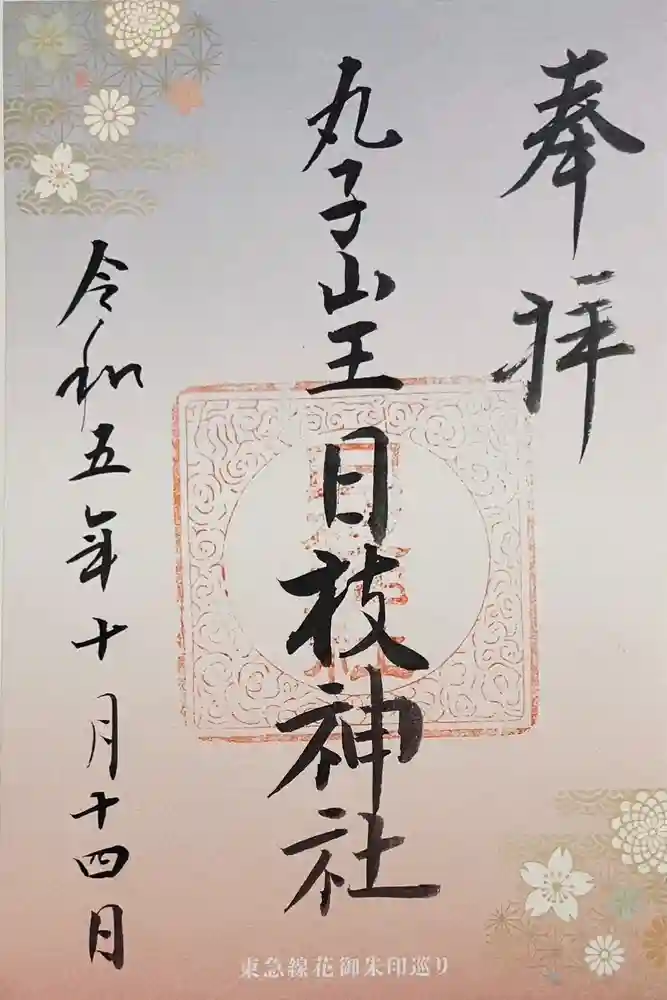 奉拝
丸子山王日枝神社
令和五年十月十四日
東急線花御朱印巡り